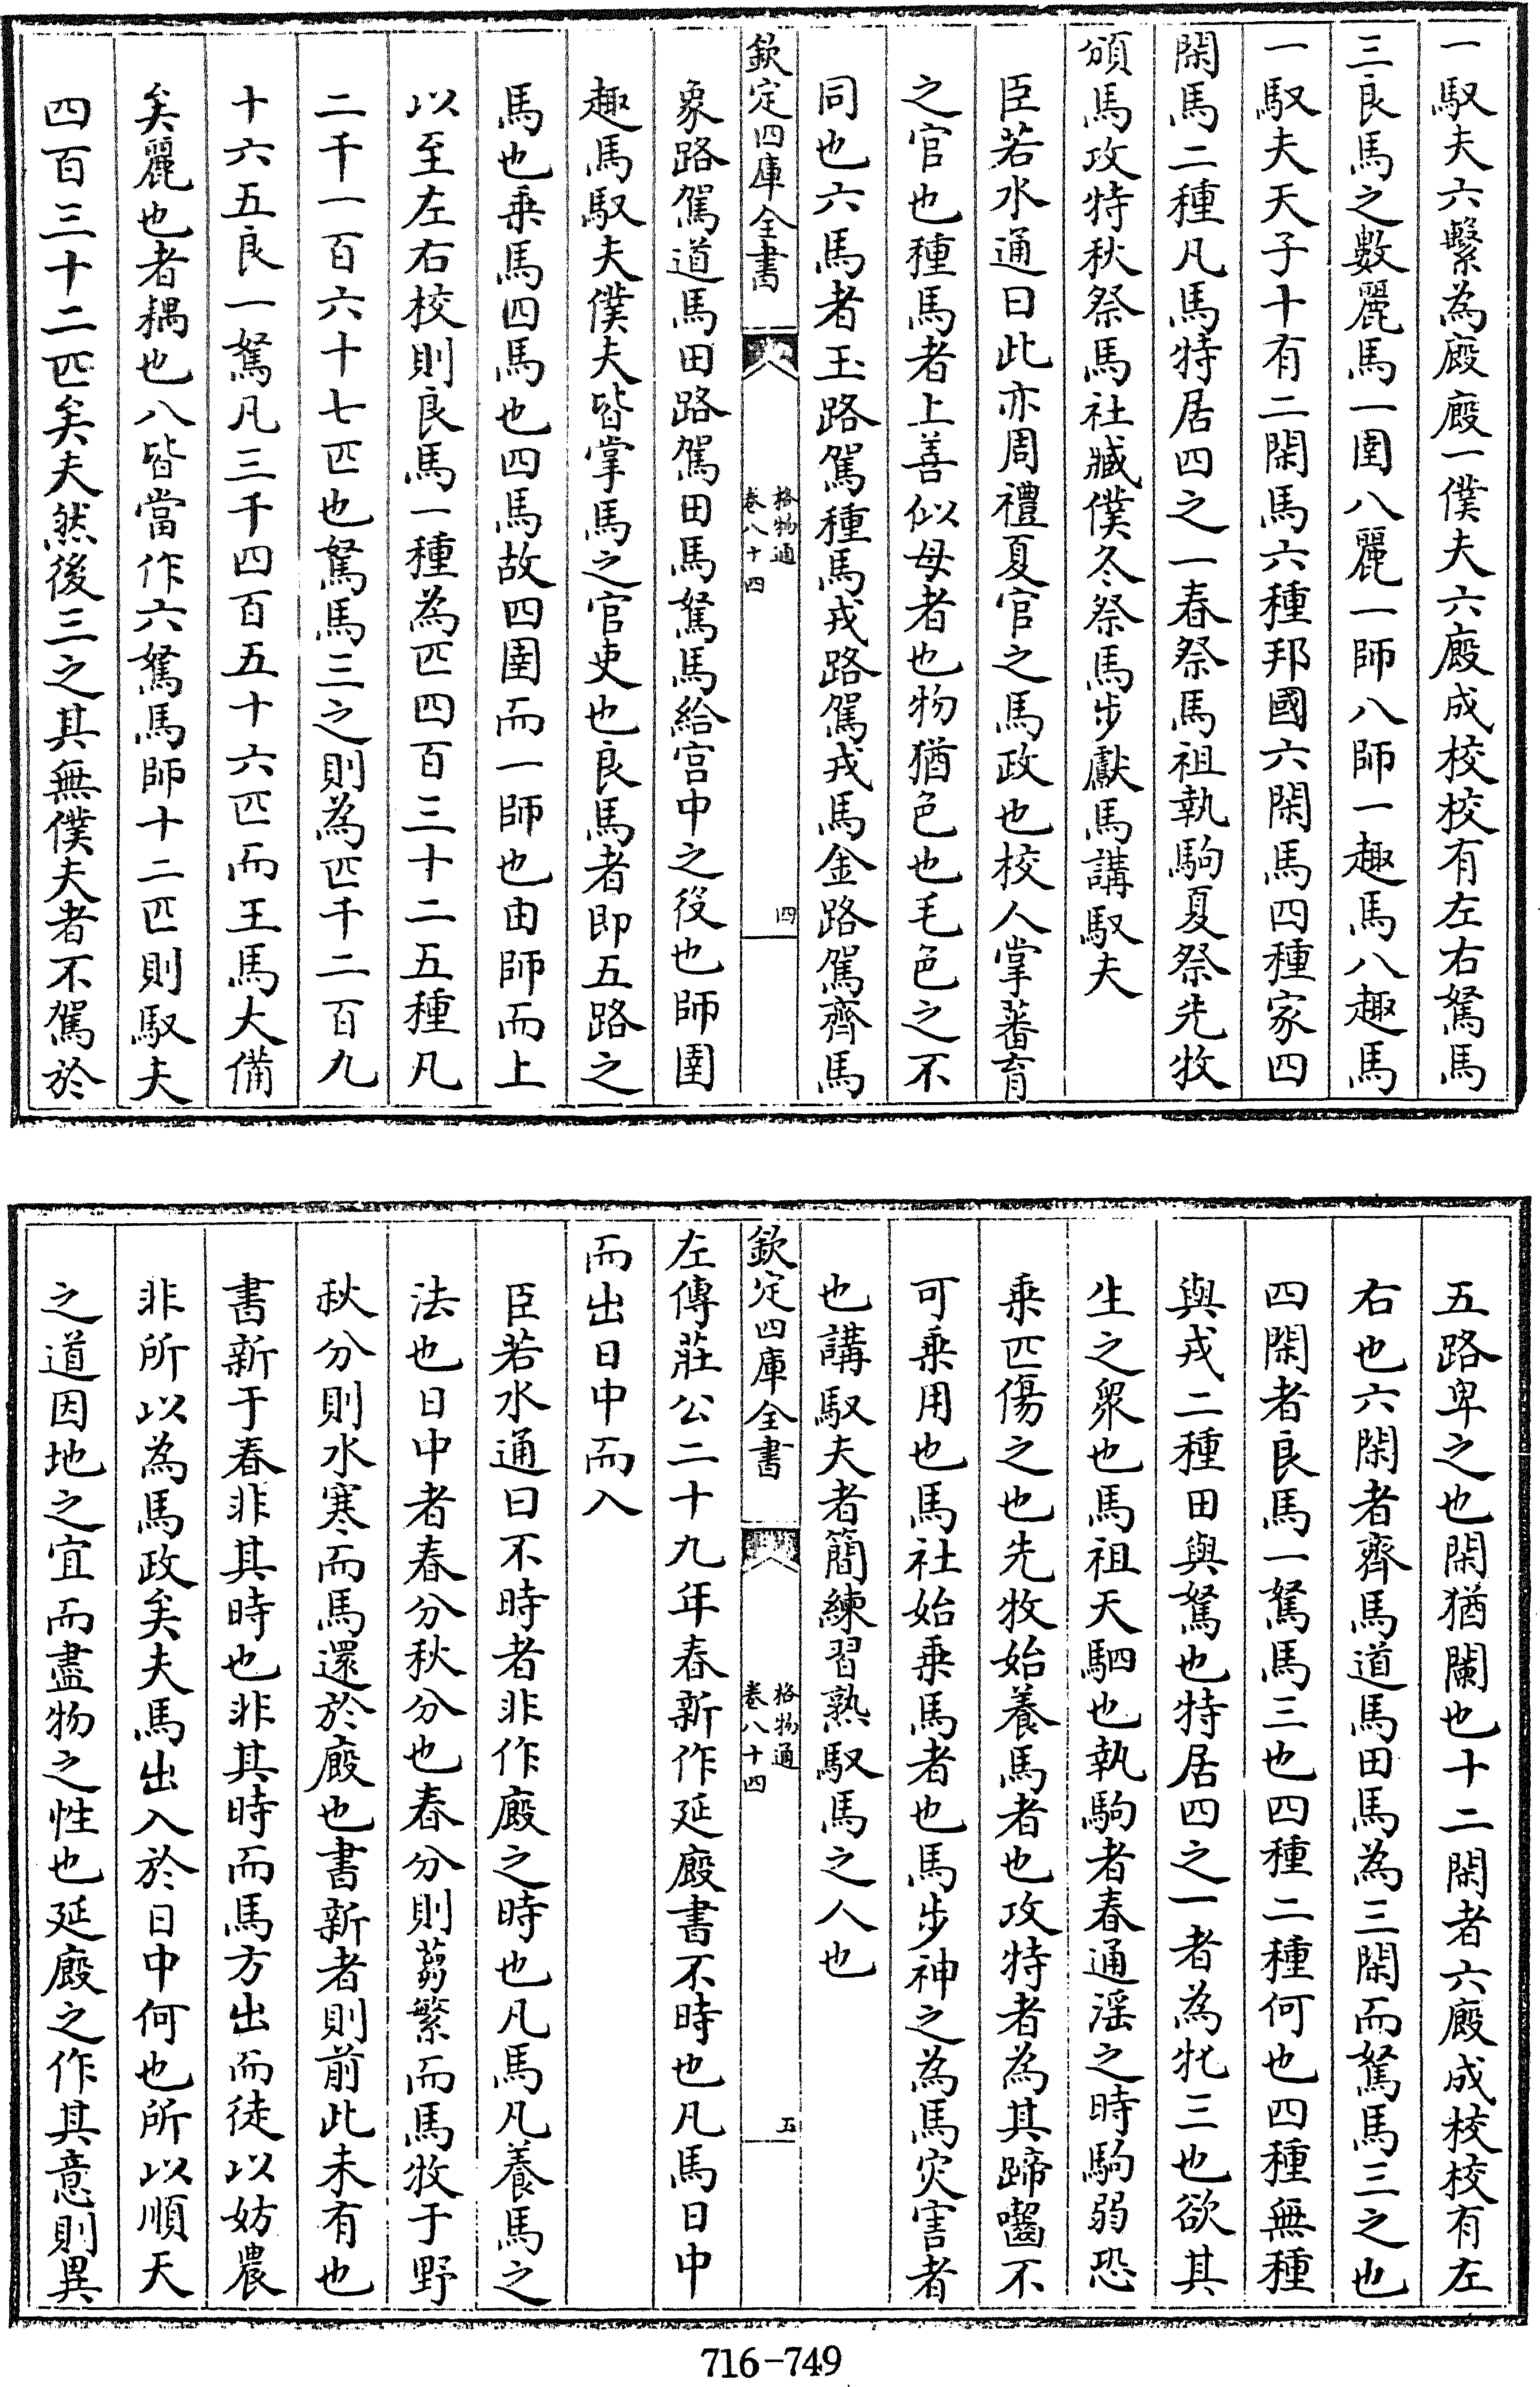 一馭夫六繫為廄廄一僕夫六廄成校校有左右駑馬
三良馬之數麗馬一圉八麗一師八師一趣馬八趣馬
一馭夫天子十有二閑馬六種邦國六閑馬四種家四
閑馬二種凡馬特居四之一春祭馬祖執駒夏祭先牧
頒馬攻特秋祭馬社臧僕冬祭馬步獻馬講馭夫
臣若水通曰此亦周禮夏官之馬政也校人掌蕃育
之官也種馬者上善似母者也物猶色也毛色之不
同也六馬者玉路駕種馬戎路駕戎馬金路駕齊馬
欽定四庫全書
格物通
卷八十四
四
象路駕道馬田路駕田馬駑馬給宫中之役也師圉
趣馬馭夫僕夫皆掌馬之官吏也良馬者即五路之
馬也乗馬四馬也四馬故四圉而一師也由師而上
以至左右校則良馬一種為匹四百三十二五種凡
二千一百六十七匹也駑馬三之則為匹千二百九
十六五良一駑凡三千四百五十六匹而王馬大備
矣麗也者耦也八皆當作六駑馬師十二匹則馭夫
四百三十二匹矣夫然後三之其無僕夫者不駕於
五路卑之也閑猶闌也十二閑者六廄成校校有左
右也六閑者齊馬道馬田馬為三閑而駑馬三之也
四閑者良馬一駑馬三也四種二種何也四種無種
與戎二種田與駑也特居四之一者為牝三也欲其
生之衆也馬祖天駟也執駒者春通淫之時駒弱恐
乗匹傷之也先牧始養馬者也攻特者為其蹄齧不
可乗用也馬社始乗馬者也馬步神之為馬灾害者
也講馭夫者簡練習熟馭馬之人也
欽定四庫全書
格物通
卷八十四
五
左傳莊公二十九年春新作延廄書不時也凡馬日中
而出日中而入
臣若水通曰不時者非作廄之時也凡馬凡養馬之
法也日中者春分秋分也春分則蒭繁而馬牧于野
秋分則水寒而馬還於廄也書新者則前此未有也
書新于春非其時也非其時而馬方出而徒以妨農
非所以為馬政矣夫馬出入於日中何也所以順天
之道因地之宜而盡物之性也延廄之作其意則異
716-749